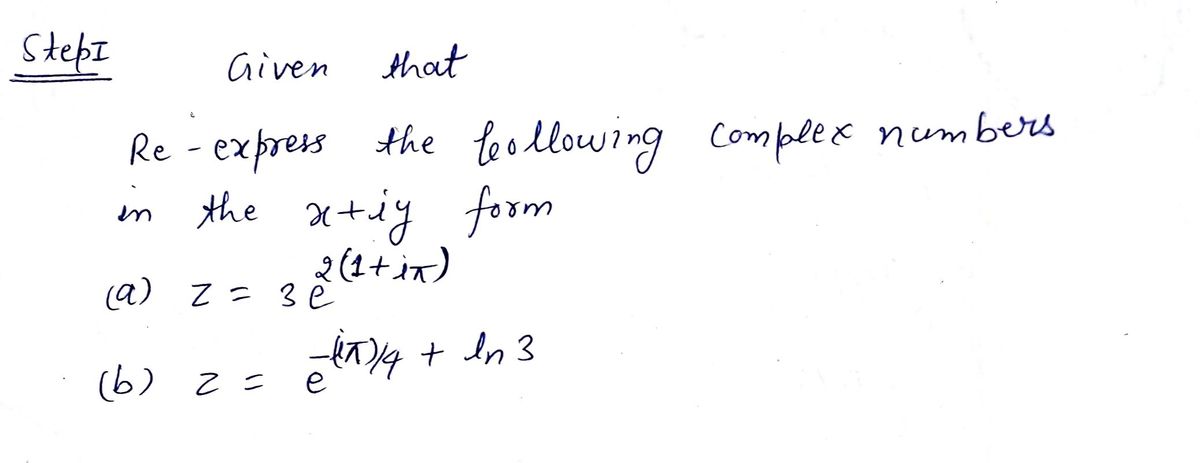 Step I
Given that
Re-express the following complex numbers
in the x+iy form
(a) z = 3e^{2(1+iπ)}
(b) z = e^{-(iπ)/4 + ln 3}